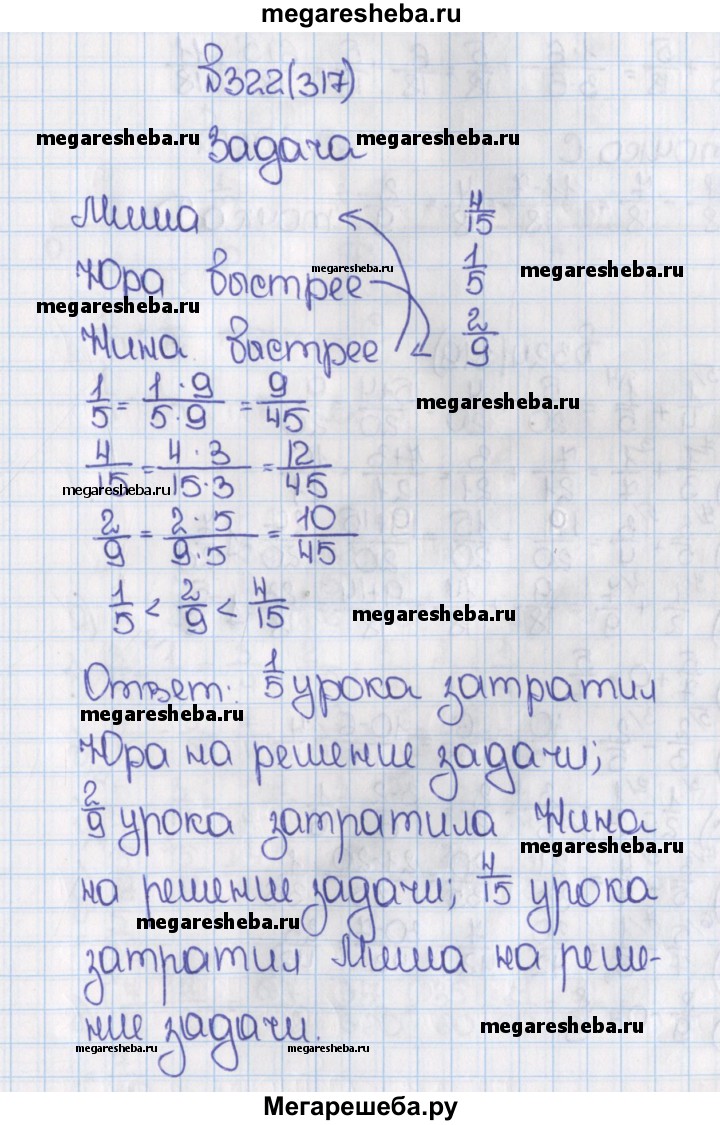 megaresheba.ru
№322(317)
megaresheba.ru Задача megaresheba.ru
Миша 4/15
Юра быстрее megaresheba.ru 1/5 megaresheba.ru
megaresheba.ru
Нина быстрее 2/9
1/5 = 1·9/5·9 = 9/45 megaresheba.ru
4/15 = 4·3/15·3 = 12/45
megaresheba.ru
2/9 = 2·5/9·5 = 10/45
1/5 < 2/9 < 4/15 megaresheba.ru
Ответ: 1/5 урока затратил
megaresheba.ru
Юра на решение задачи;
2/9 урока затратила Нина
megaresheba.ru
на решение задачи; 4/15 урока
megaresheba.ru
затратил Миша на реше-
ние задачи. megaresheba.ru
megaresheba.ru megaresheba.ru
Мегарешеба.ру